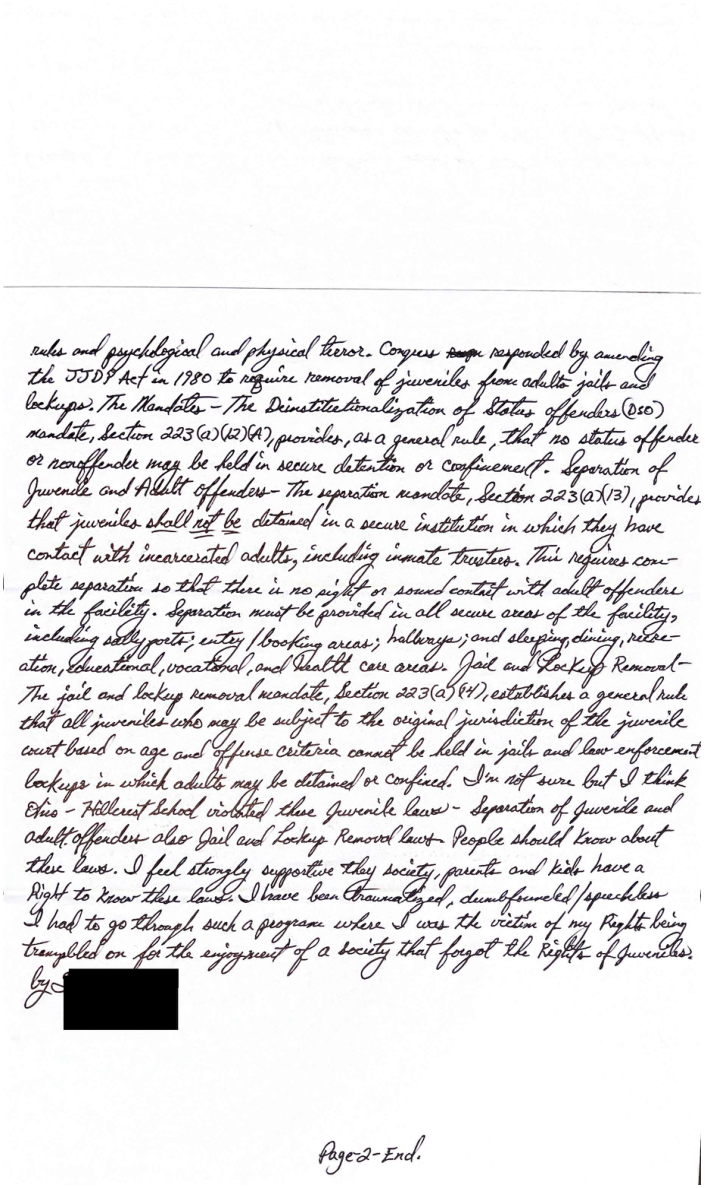 rules and psychological and physical terror. Congress responded by amending
the JJDP Act in 1980 to require removal of juveniles from adults jails and
lockups. The Mandates - The Deinstitutionalization of Status offenders (DSO)
mandate, Section 223(a)(12)(A), provides, as a general rule, that no status offender
or nonoffender may be held in secure detention or confinement. Separation of
Juvenile and Adult offenders - The separation mandate, Section 223(a)(13), provides
that juveniles shall not be detained in a secure institution in which they have
contact with incarcerated adults, including inmate trustees. This requires com-
plete separation so that there is no sight or sound contact with adult offenders
in the facility. Separation must be provided in all secure areas of the facility,
including sally ports; entry/booking areas; hallways; and sleeping, dining, recre-
ation, educational, vocational, and health care areas. Jail and Lockup Removal -
The jail and lockup removal mandate, Section 223(a)(14), establishes a general rule
that all juveniles who may be subject to the original jurisdiction of the juvenile
court based on age and offense criteria cannot be held in jails and law enforcement
lockups in which adults may be detained or confined. I'm not sure but I think
Ohio - Hillcrest School violated these Juvenile laws - Separation of Juvenile and
adult offenders also Jail and Lockup Removal laws. People should know about
these laws. I feel strongly supportive they society, parents and kids have a
Right to know these laws. I have been traumatized, dumbfounded/speechless
I had to go through such a programe where I was the victim of my Rights being
trampled on for the enjoyment of a society that forgot the Rights of Juveniles.
by
Page-2-End.